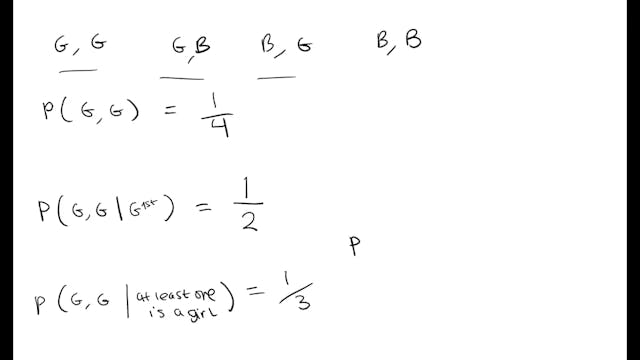 G, G G,B B, G B, B
P( G, G) = 1/4
P(G, G | G 1st) = 1/2
P
P (G, G | at least one is a girl) = 1/3